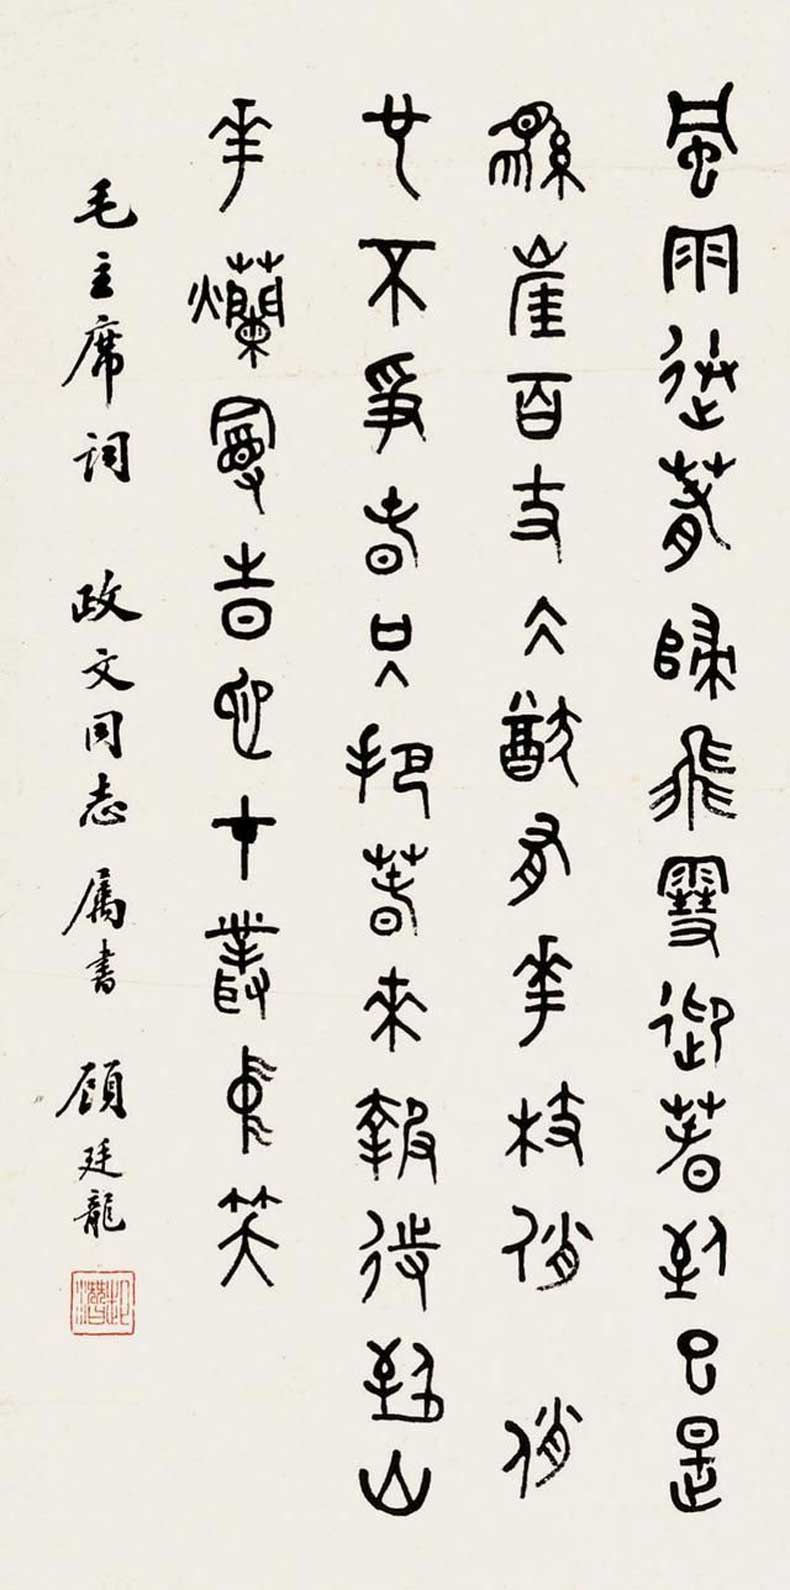 風雨送春歸飛雪迎春到已是
縣崖百丈仌猷有華枝俏俏
也不爭春只把春來報待到山
華爛曼時也在叢中笑
毛主席詞 政文同志属書 顧廷龍
起潛